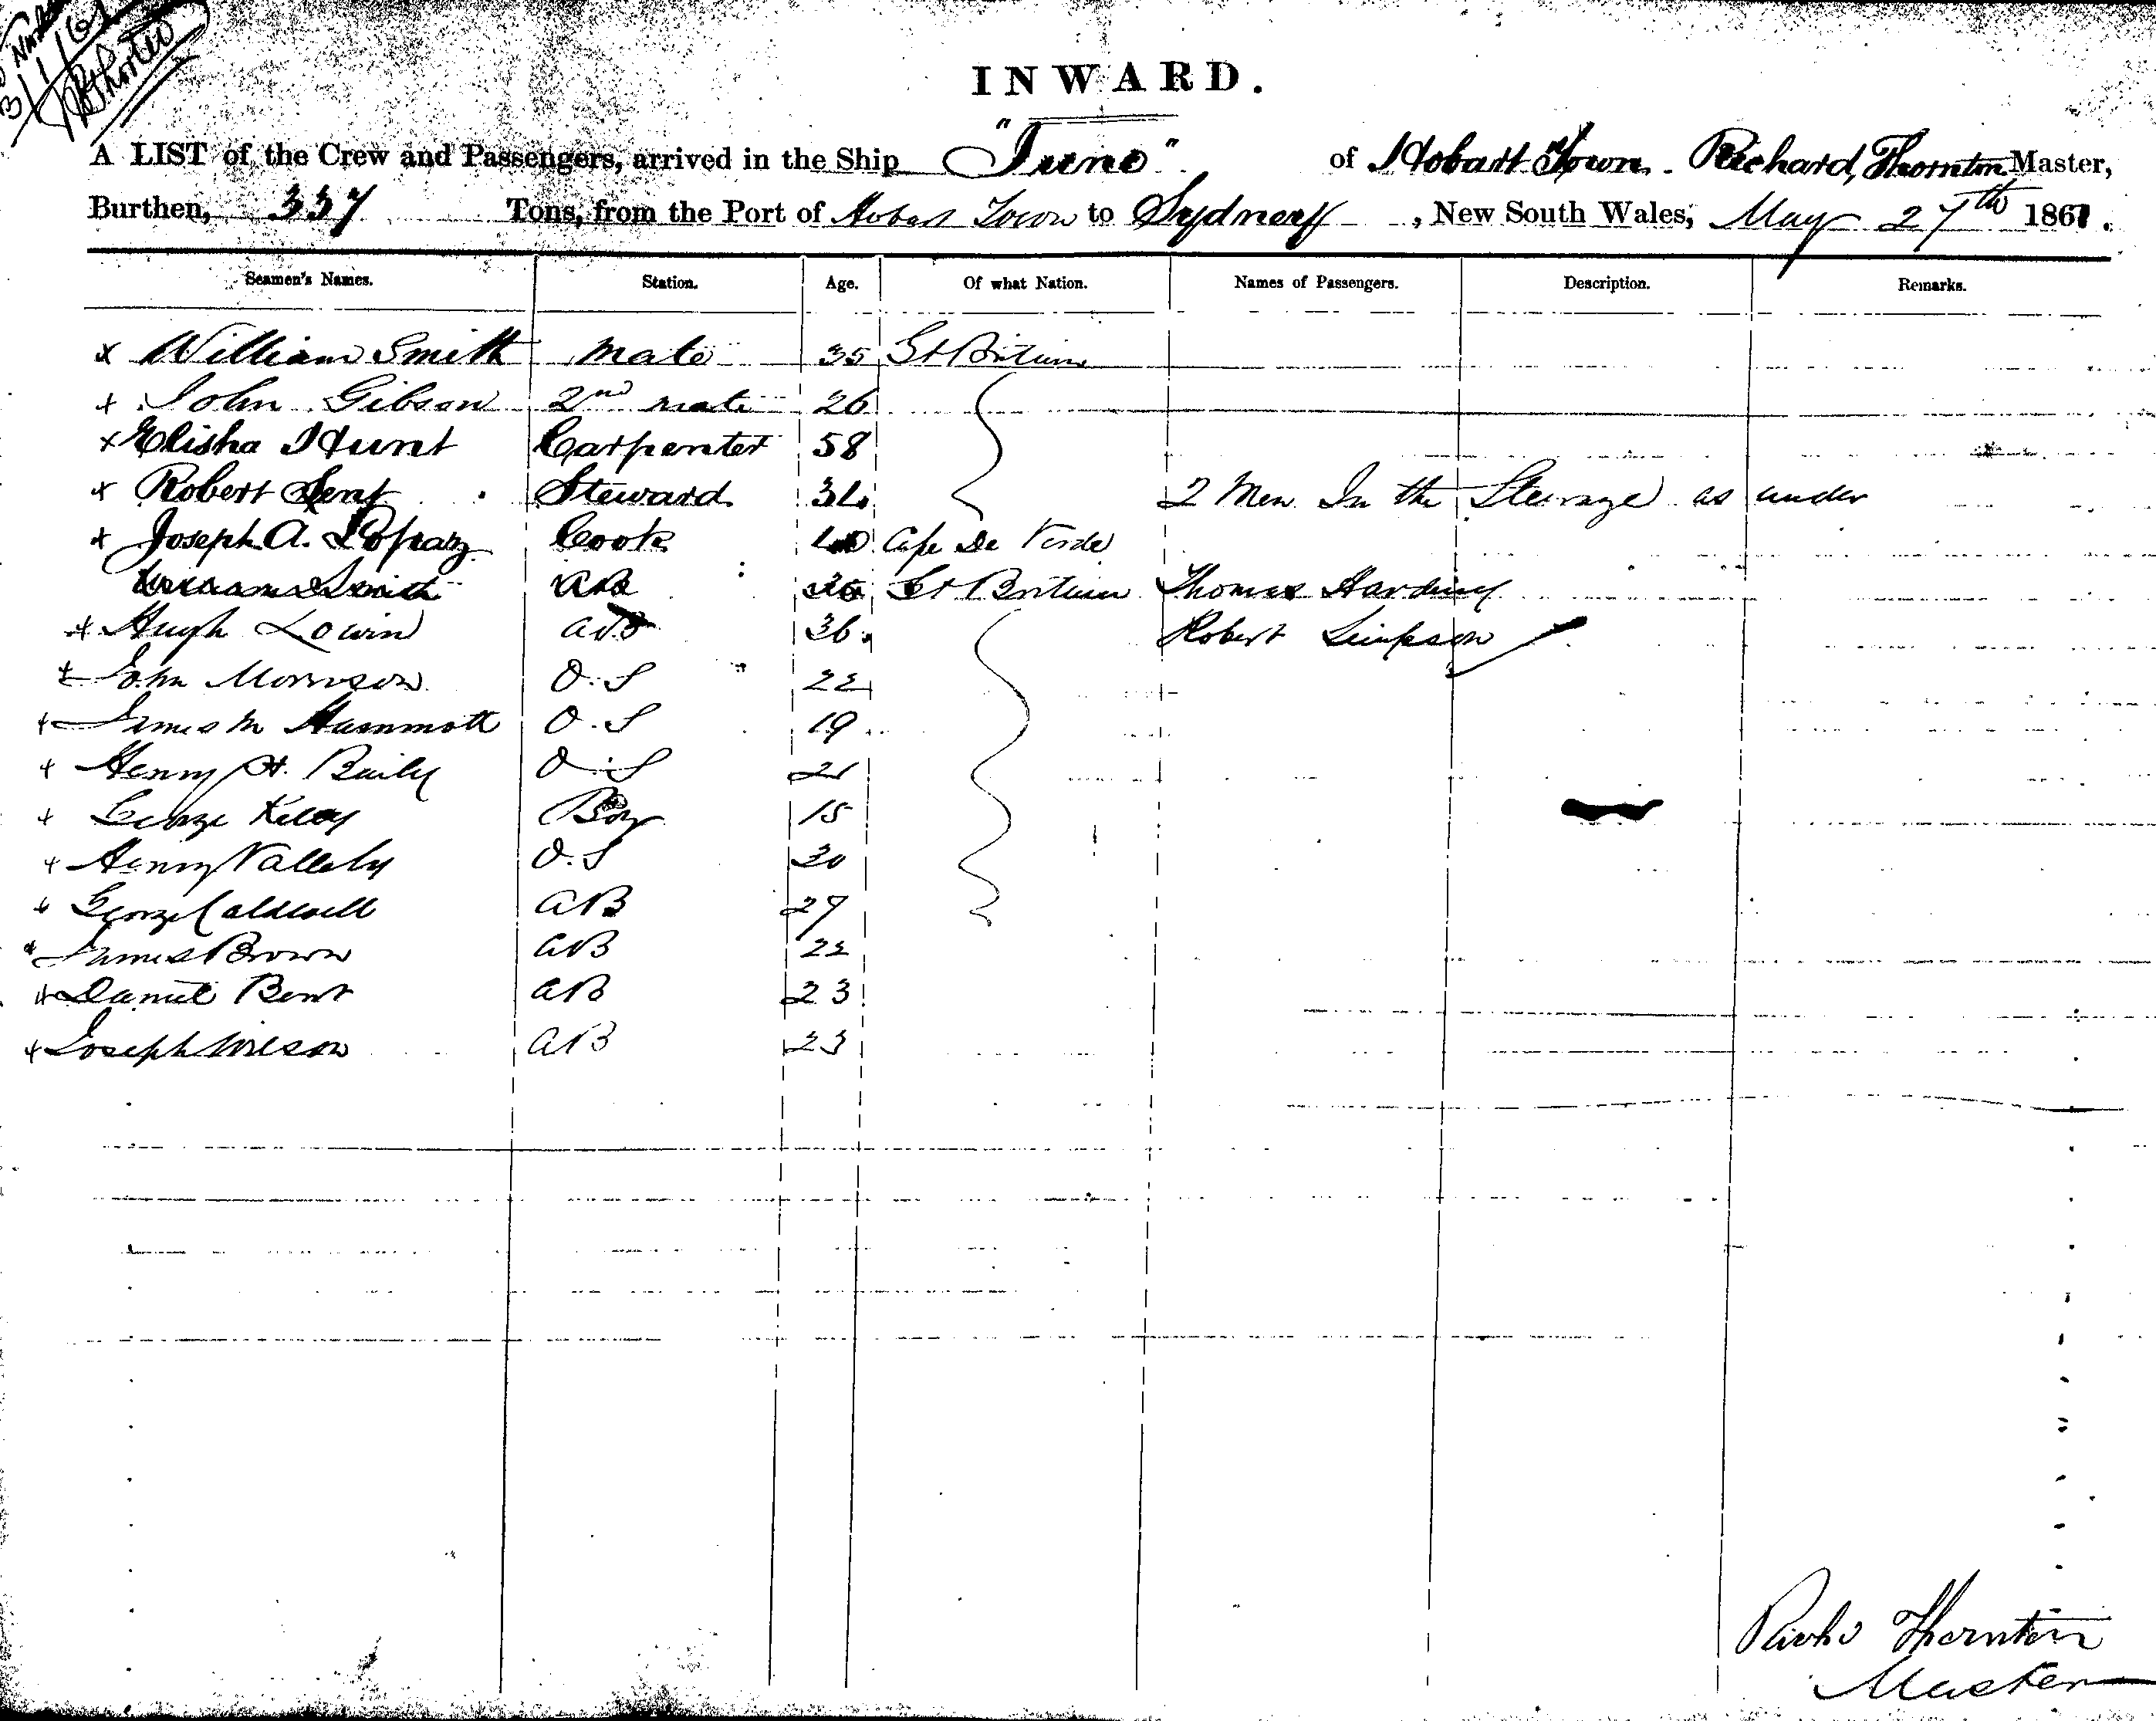 INWARD.
A LIST of the Crew and Passengers, arrived in the Ship "Juno" of Hobart Town. Richard Thornton Master,
Burthen, 337 Tons, from the Port of Hobart Town to Sydney, New South Wales, May 27th 1861.
Seamen's Names. Station. Age. Of what Nation. Names of Passengers. Description. Remarks.
x William Smith Mate 35 Gt Britain
x John Gibson 2nd mate 26
x Elisha Hunt Carpenter 58
x Robert Steward
2 Men In the Steerage as under
x Joseph A. Cook Cape De Verde
AB Gt Britain Thomas Harding
x Hugh AB 36 Robert Simpson
x John Morrison O.S 22
x James M Hammott O.S 19
x Henry H. Baily O.S 21
x George Kelly Boy 15
x Henry O.S 30
x George Caldwell AB 27
x James Brown AB 22
x Daniel Bent AB 23
x Joseph Wilson AB 23
Richd Thornton
Master